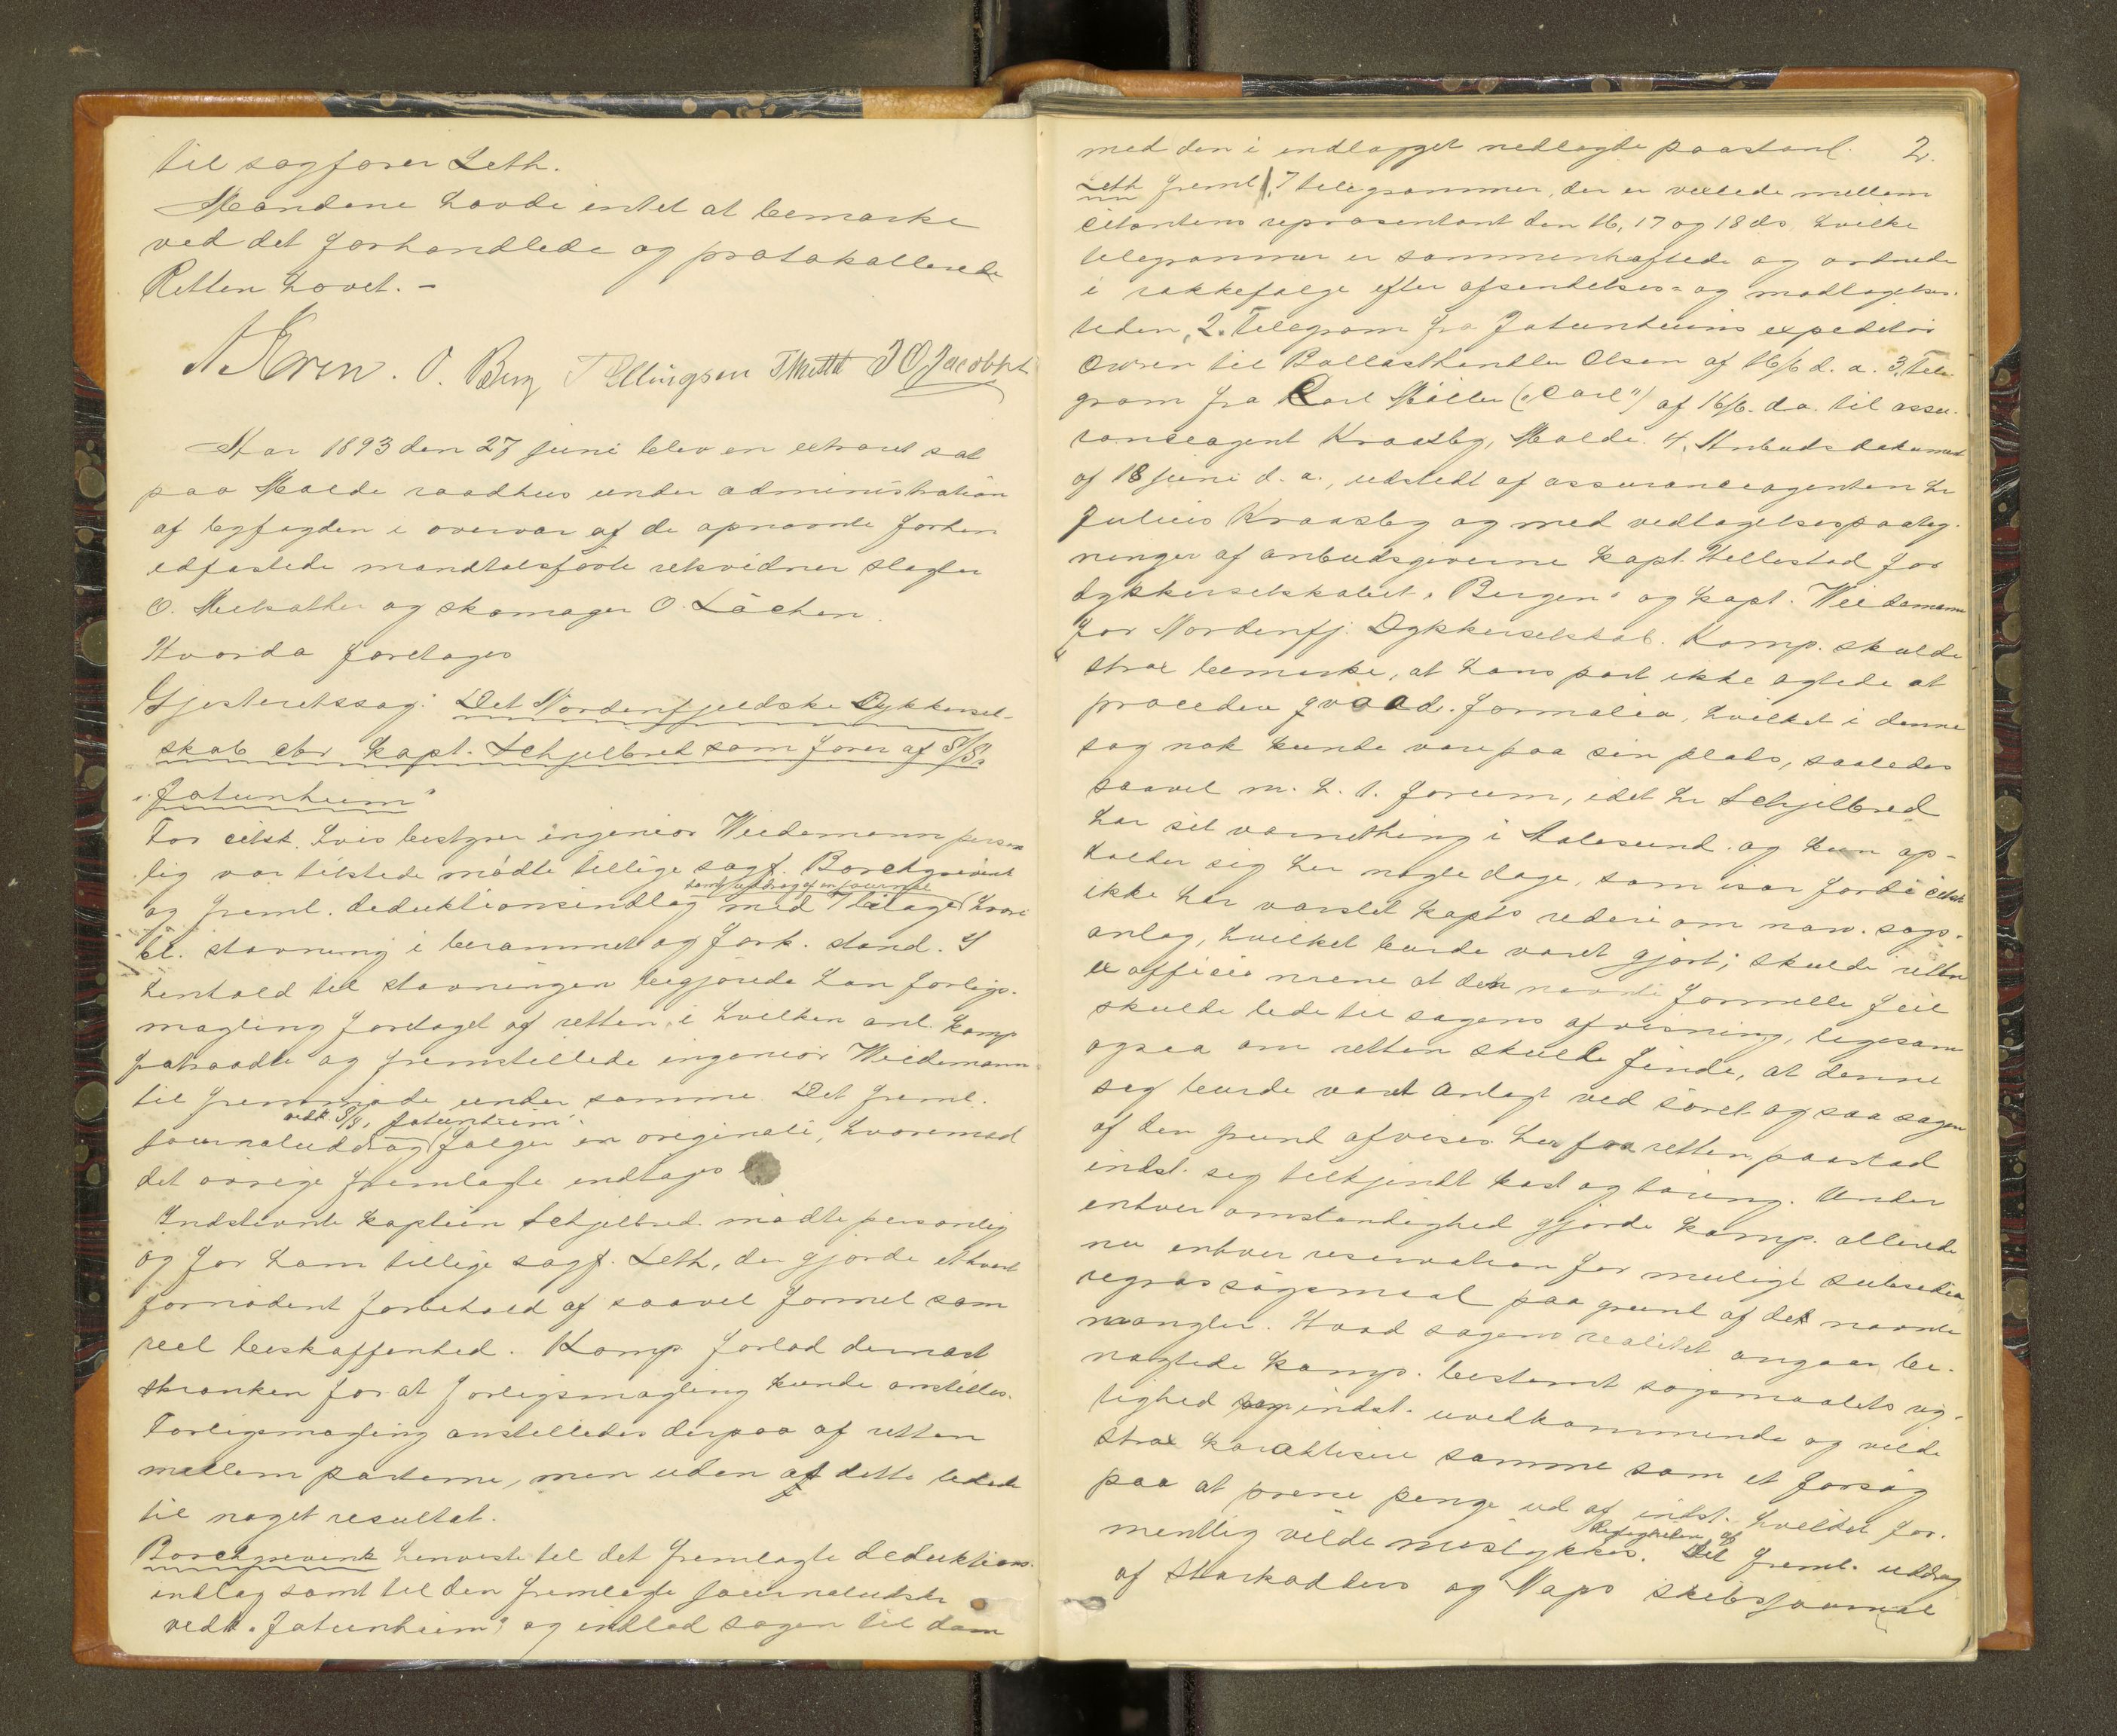 til sagfører Leth.
Mændene havde intet at bemærke
ved det forhandlede og protokollerede
Retten hævet. –
O. Berg T Ellingsen J O Jacobsen
Aar 1893 den 27 juni blev en extraret sat
paa Molde raadhus under administration
af byfogden i overvær af de opnævnte forhen
edfæstede mandtalsførte retsvidner slagter
O. Melsæther og skomager O. Löchen.
Hvorda foretoges
Gjesteretssag: Det Nordenfjeldske Dykkersel-
skab ctr kapt. Schjelbred som fører af S/S.
"Jotunheim"
For citst. hvis bestyrer ingeniør Weidemann person
lig var tilstede mødte tillige sagf. Borchgrevink
samt uddrag af en journal
og freml. deduktionsindlæg med 7 bilage hvori
bl. stævning i berammet og fork. stand. I
henhold til stævningen begjærede han forligs-
mægling foretaget af retten, i hvilken anl. komp
fratraadte og fremstillede ingeniør Weidemann
til fremmøde under samme. Det freml.
vedk. S/S. "Jotunheim"
journaluddrag følger in originali, hvoremod
det øvrige fremlagte indtages
Indstevnte kaptein Schjelbred mødte personlig
og for ham tillige sagf. Leth, der gjorde ethvert
fornødent forbehold af saavel formel som
reel beskaffenhed. Komp forlod dernæst
skranken for at forligsmægling kunde anstilles.
Forligsmægling anstilledes derpaa af retten
mellem parterne, men uden at dette ledede
til noget resultat.
Borchgrevink henviste til det fremlagte deduktions-
indlæg samt til den fremlagte journaludskr
vedk. "Jotunheim", og indlod sagen til dom
2.
med den i indlægget nedlagte paastand.
Leth freml 1, 7 telegrammer, der er vexlede mellem
citantens repræsentant den 16, 17 og 18 ds, hvilke
telegrammer er sammenhæftede og ordnede
i rækkefølge efter afsendelses- og modtagelses-
tiden, 2. Telegram fra Jotunheims expeditör
Owren til Ballasthandler Olsen af 16/6 d. a. 3. Tele-
gram fra Carl Möller ("Carl") af 16/6. d.a. til assu-
ranceagent Kraasby, Molde. 4, Anbudsdokument
af 18 juni d. a., udstedt af assuranceagenten hr
Julius Kraasby og med vedtagelsespaateg-
ninger af anbudsgiverne kapt. Hellestad for
dykkerselskabet "Bergen" og kapt. Weidemann
for Nordenfj. Dykkerselskab. Komp. skulde
strax bemærke, at hans part ikke agtede at
procedere qvoad formalia, hvilket i denne
sag nok kunde være paa sin plads, saaledes
saavel m. h. t. forum, idet hr Schjelbred
har sit værnething i Aalesund og kun op-
holder sig her nogle dage, som især fordi citst
ikke har varslet kapts rederi om nærv. sags-
anlæg, hvilket burde været gjort; skulde retten
ex officio mene at den nævnte formelle feil
skulde lede til sagens afvisning, ligesom
ogsaa om retten skulde finde, at denne
sag burde været anlagt ved söret og saa sagen
af den grund afvises her fra retten, paastod
indst. sig tilkjendt kost og tæring. Under
enhver omstændighed gjorde komp. allerede
nu enhver reservation for mulige subsidiære
regressögsmaal paa grund af det nævnte
mangler. Hvad sagens realitet angaar be-
nægtede komp. bestemt søgsmaalets rig-
tighed indst. uvedkommende og vilde
strax karaktisere samme som et forsög
paa at presse penge ud af indst. hvilket for-
Rigtigheden af
mentlig vilde mislykkes. Det freml. uddrag
af Starkodders og Vaps skibsjournal